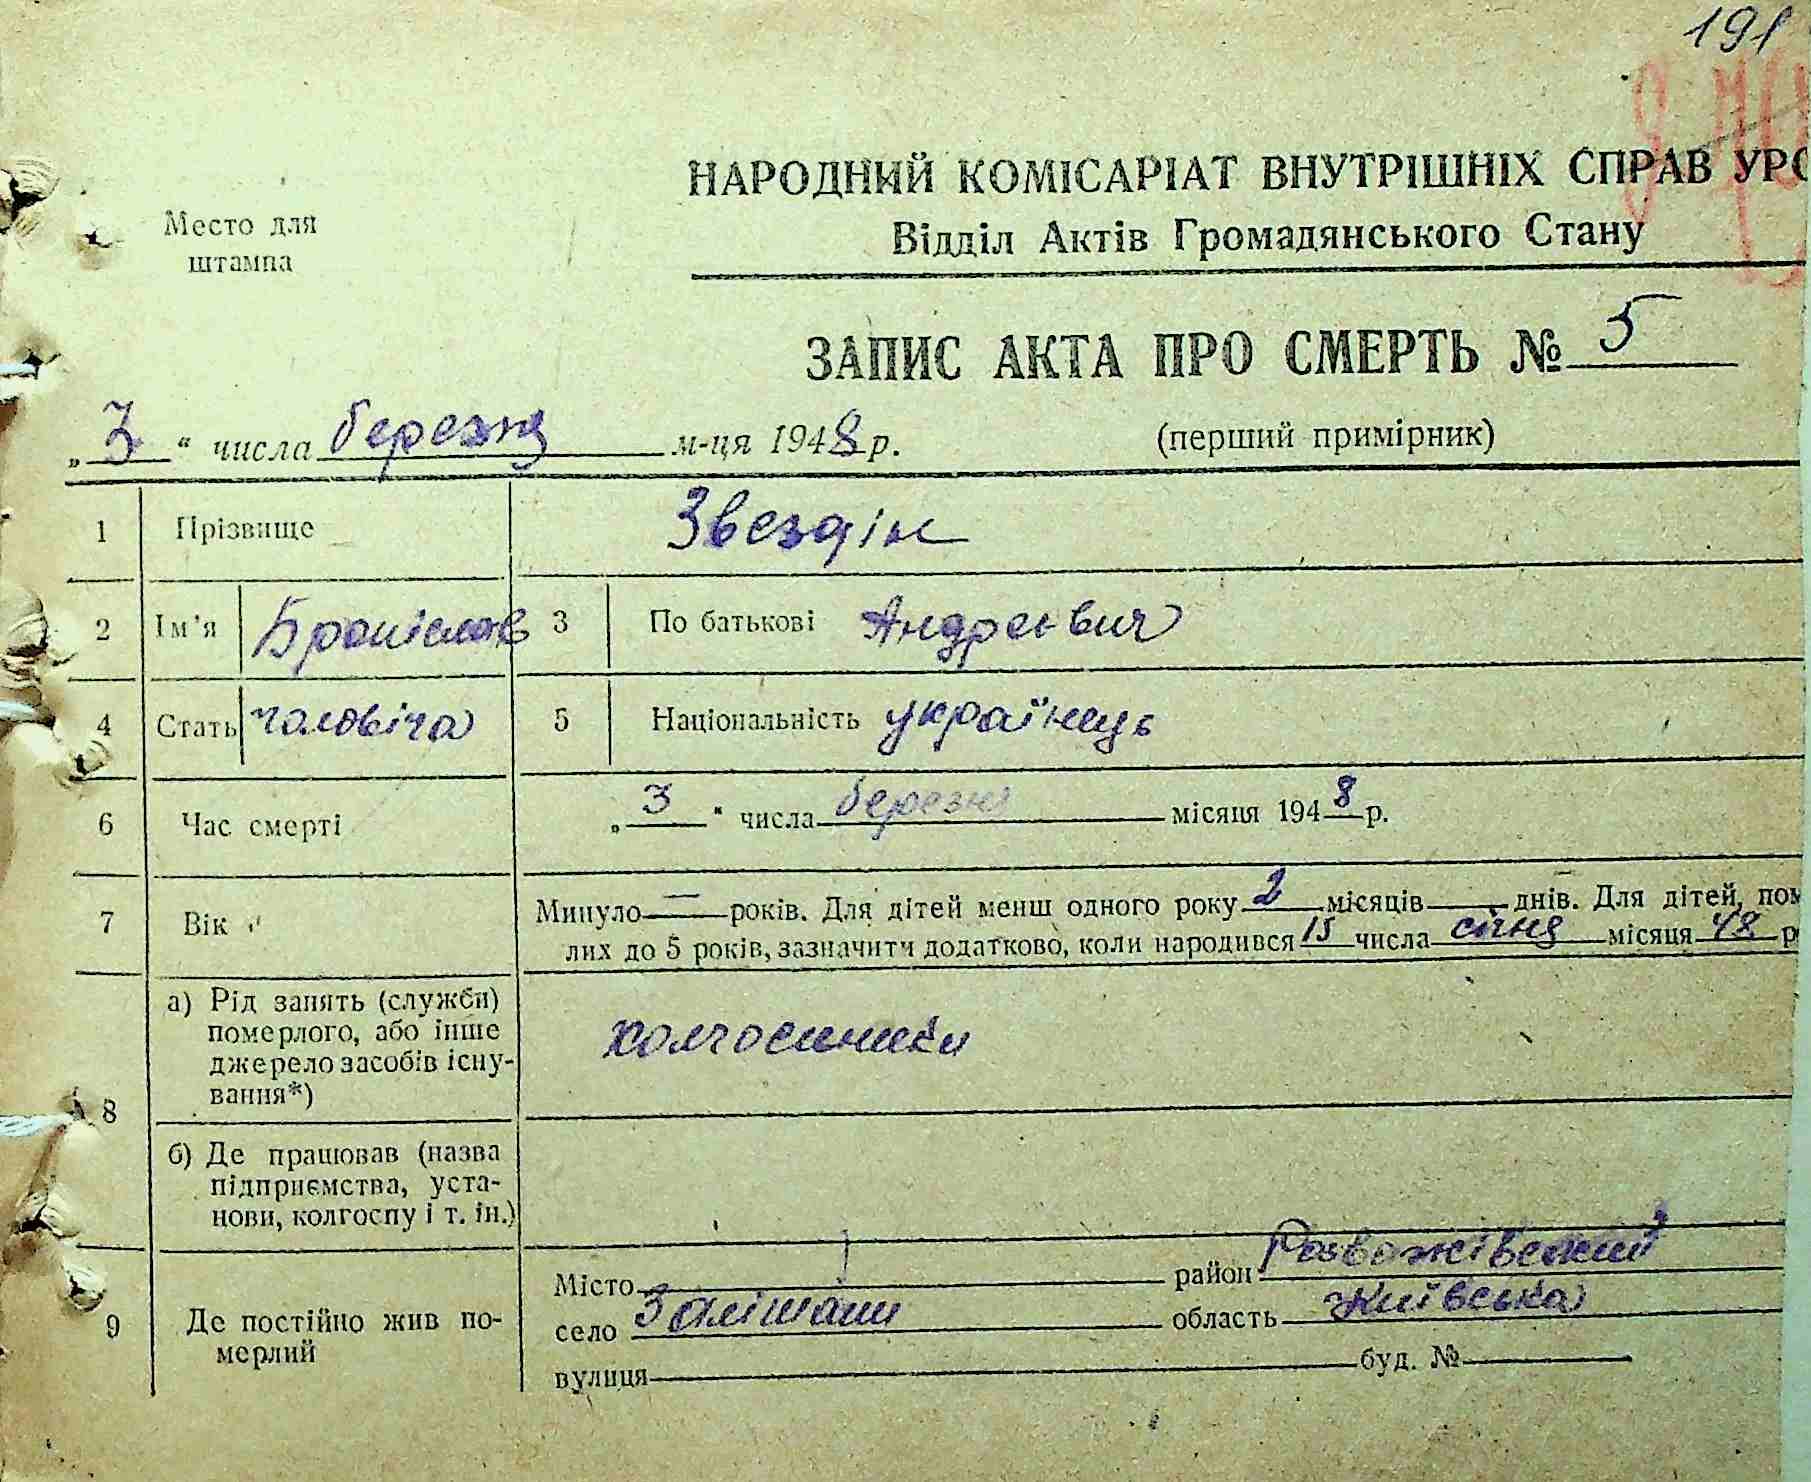 191
НАРОДНИЙ КОМІСАРІАТ ВНУТРІШНІХ СПРАВ УРС
Место для штампа
Відділ Актів Громадянського Стану
ЗАПИС АКТА ПРО СМЕРТЬ № 5
„ 3 “ числа березня м-ця 1948 р.
(перший примірник)
1 Прізвище Звездін
2 Ім'я Броніслав 3 По батькові Андреєвич
4 Стать чоловіча 5 Національність українець
6 Час смерті „ 3 “ числа березня місяця 1948 р.
7 Вік Минуло — років. Для дітей менш одного року 2 місяців днів. Для дітей, пом
лих до 5 років, зазначити додатково, коли народився 15 числа січня місяця 48 р
8 а) Рід занять (служби)
померлого, або інше
джерело засобів існу-
вання*)
колгоспники
б) Де працював (назва
підприємства, уста-
нови, колгоспу і т. ін.)
9 Де постійно жив по-
мерлий
Місто район Розважівський
село Залішани область Київська
вулиця буд. №